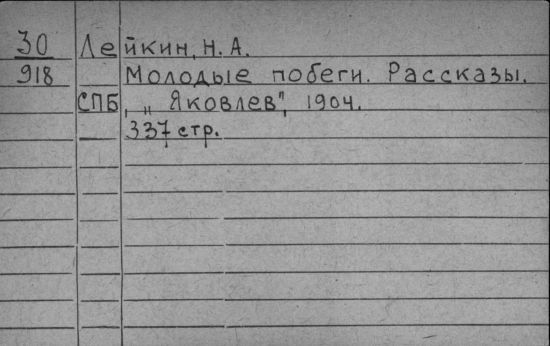 30 Лейкин, Н. А.
918 Молодые побеги. Рассказы.
СПБ, „Яковлев", 1904.
337 стр.